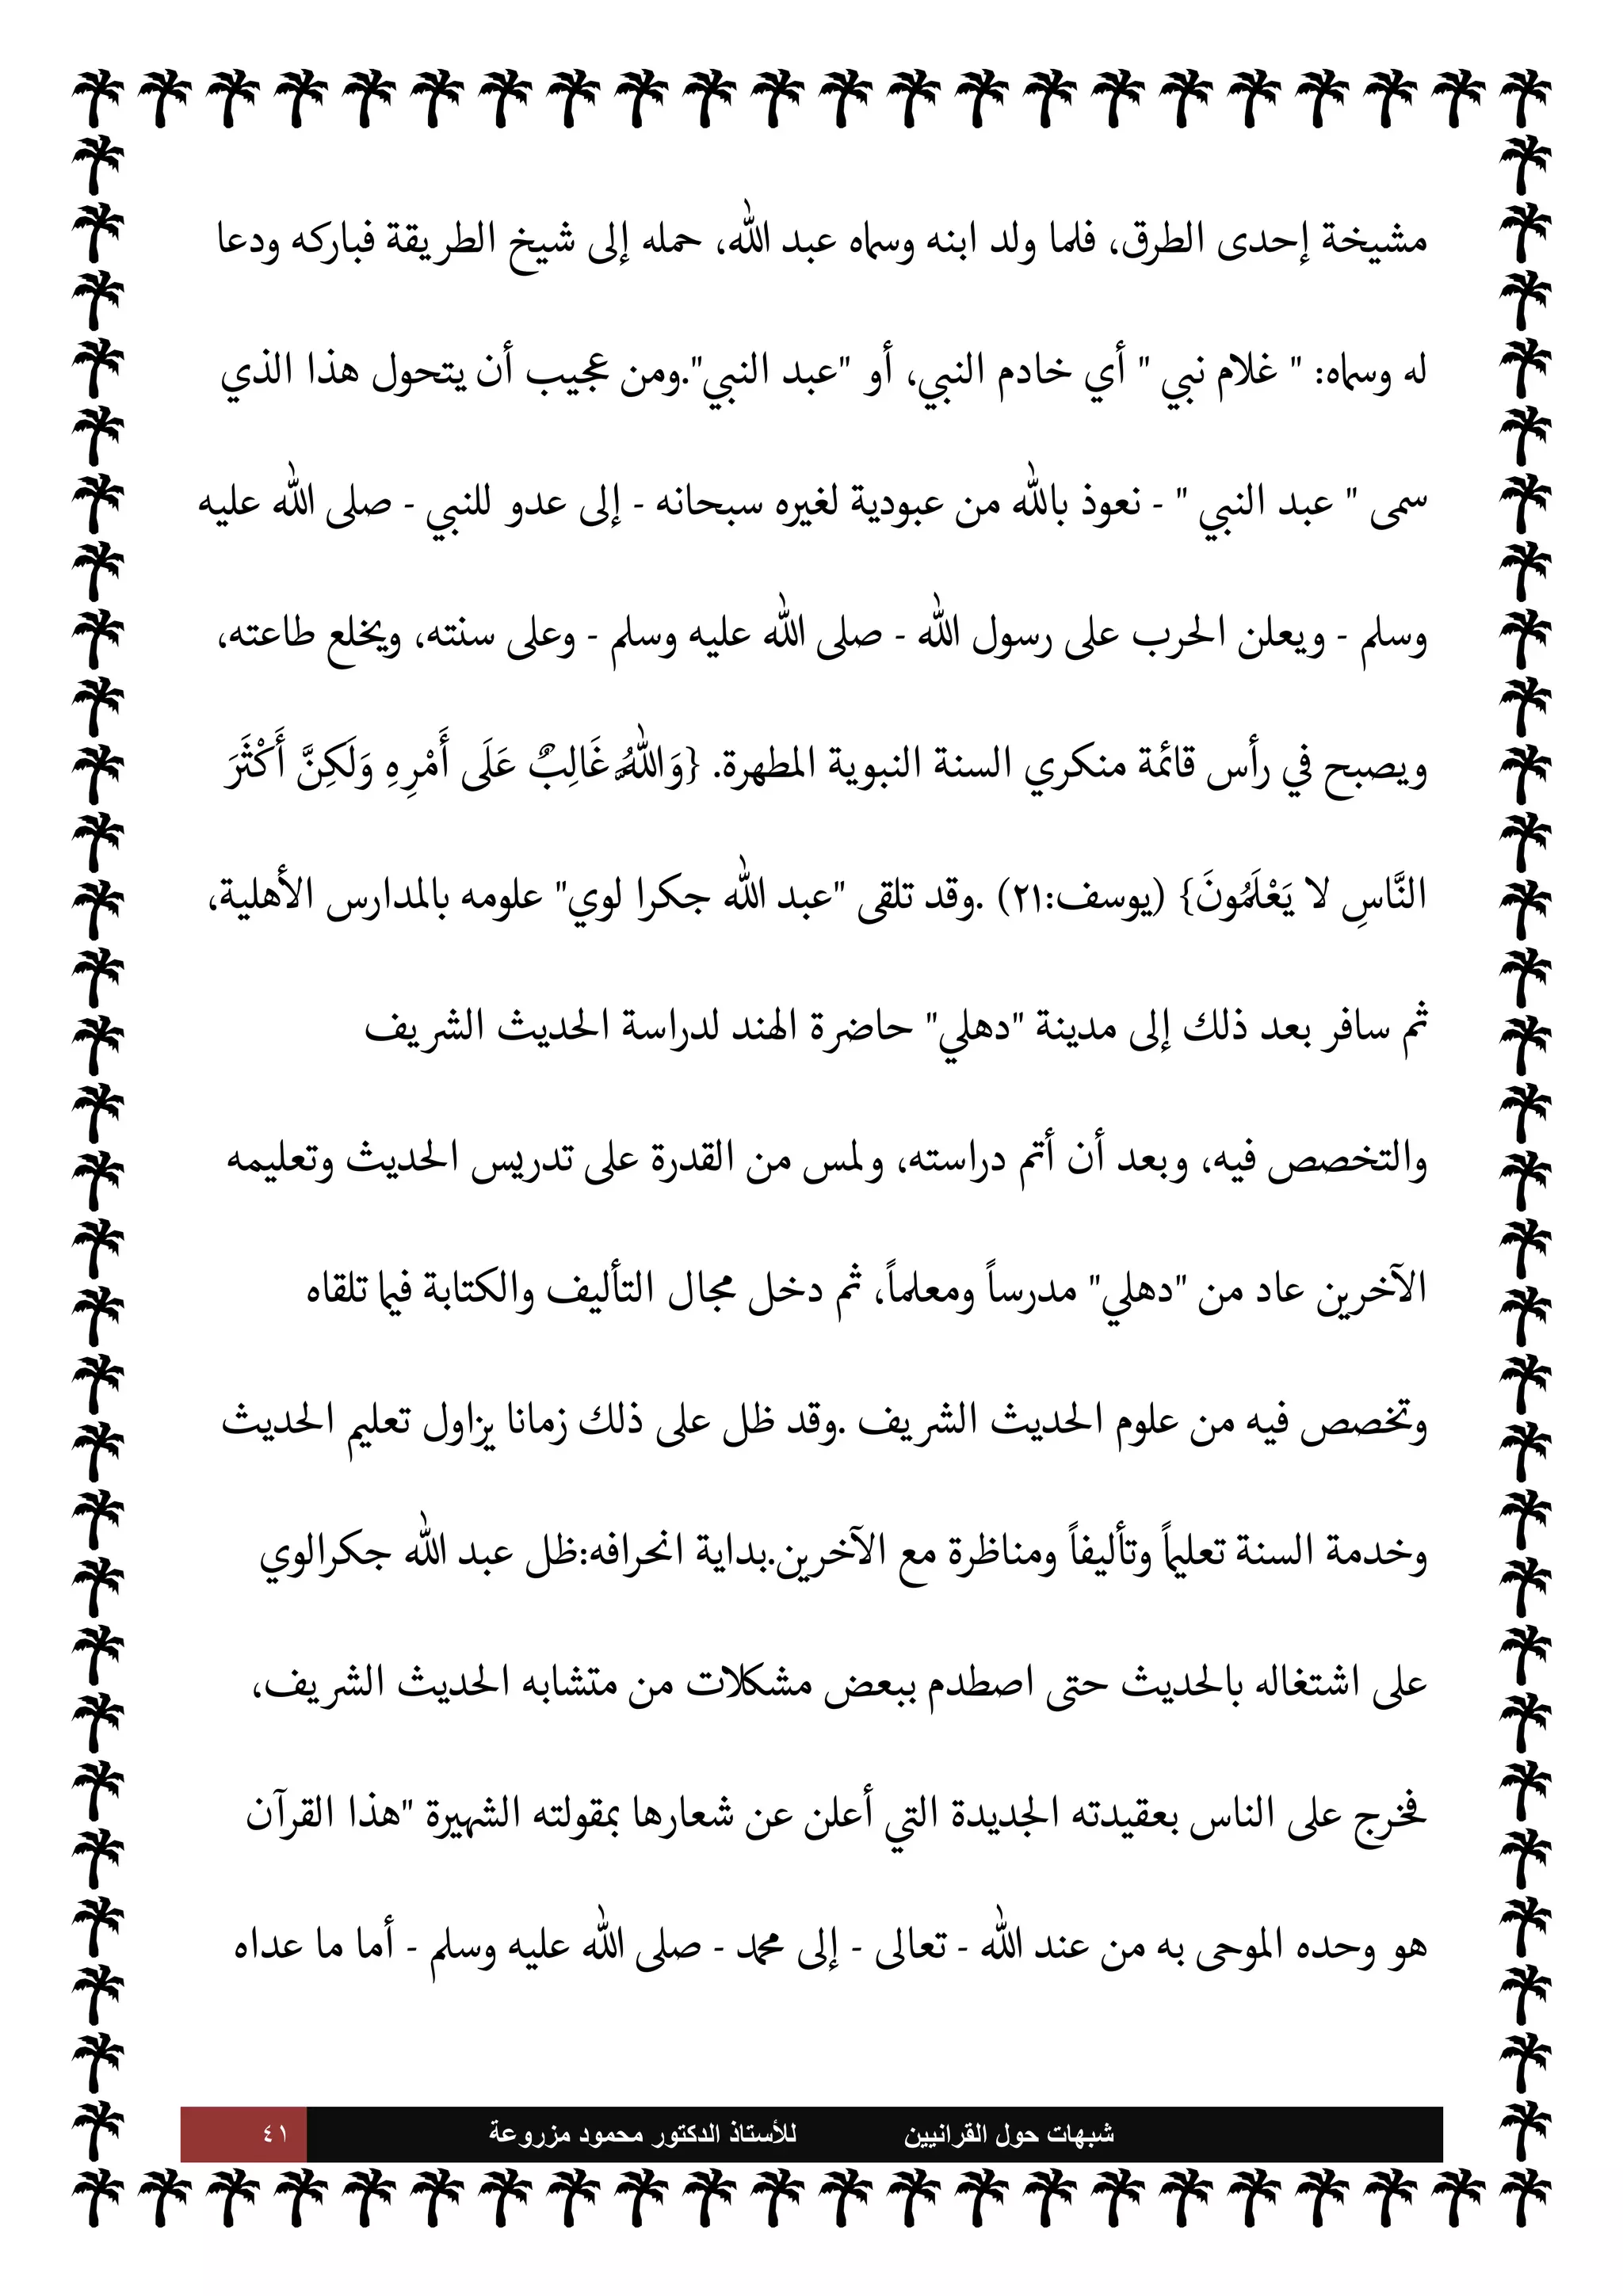 مشيخة إحدى الطرق، فلما ولد ابنه وسماه عبد الله، حمله إلى شيخ الطريقة فباركه ودعا
له وسماه: " غلام نبي " أي خادم النبي، أو "عبد النبي".ومن عجيب أن يتحول هذا الذي
سمى " عبد النبي " - نعوذ بالله من عبودية لغيره سبحانه - إلى عدو للنبي - صلى الله عليه
وسلم - ويعلن الحرب على رسول الله - صلى الله عليه وسلم - وعلى سنته، ويخلع طاعته،
ويصبح في رأس قائمة منكري السنة النبوية المطهرة. {وَاللَّهُ غَالِبٌ عَلَى أَمْرِهِ وَلَكِنَّ أَكْثَرَ
النَّاسِ لا يَعْلَمُونَ} (يوسف:٢١) .وقد تلقى "عبد الله جكرا لوي" علومه بالمدارس الأهلية،
ثم سافر بعد ذلك إلى مدينة "دهلي" حاضرة الهند لدراسة الحديث الشريف
والتخصص فيه، وبعد أن أتم دراسته، ولمس من القدرة على تدريس الحديث وتعليمه
الآخرين عاد من "دهلي" مدرساً ومعلماً، ثم دخل مجال التأليف والكتابة فيما تلقاه
وتخصص فيه من علوم الحديث الشريف .وقد ظل على ذلك زمانا يزاول تعليم الحديث
وخدمة السنة تعليماً وتأليفاً ومناظرة مع الآخرين.بداية انحرافه:ظل عبد الله جكرالوي
على اشتغاله بالحديث حتى اصطدم ببعض مشكلات من متشابه الحديث الشريف،
فخرج على الناس بعقيدته الجديدة التي أعلن عن شعارها بمقولته الشهيرة "هذا القرآن
هو وحده الموحى به من عند الله - تعالى - إلى محمد - صلى الله عليه وسلم - أما ما عداه
شبهات حول القرانيين للأستاذ الدكتور محمود مزروعة ٤١